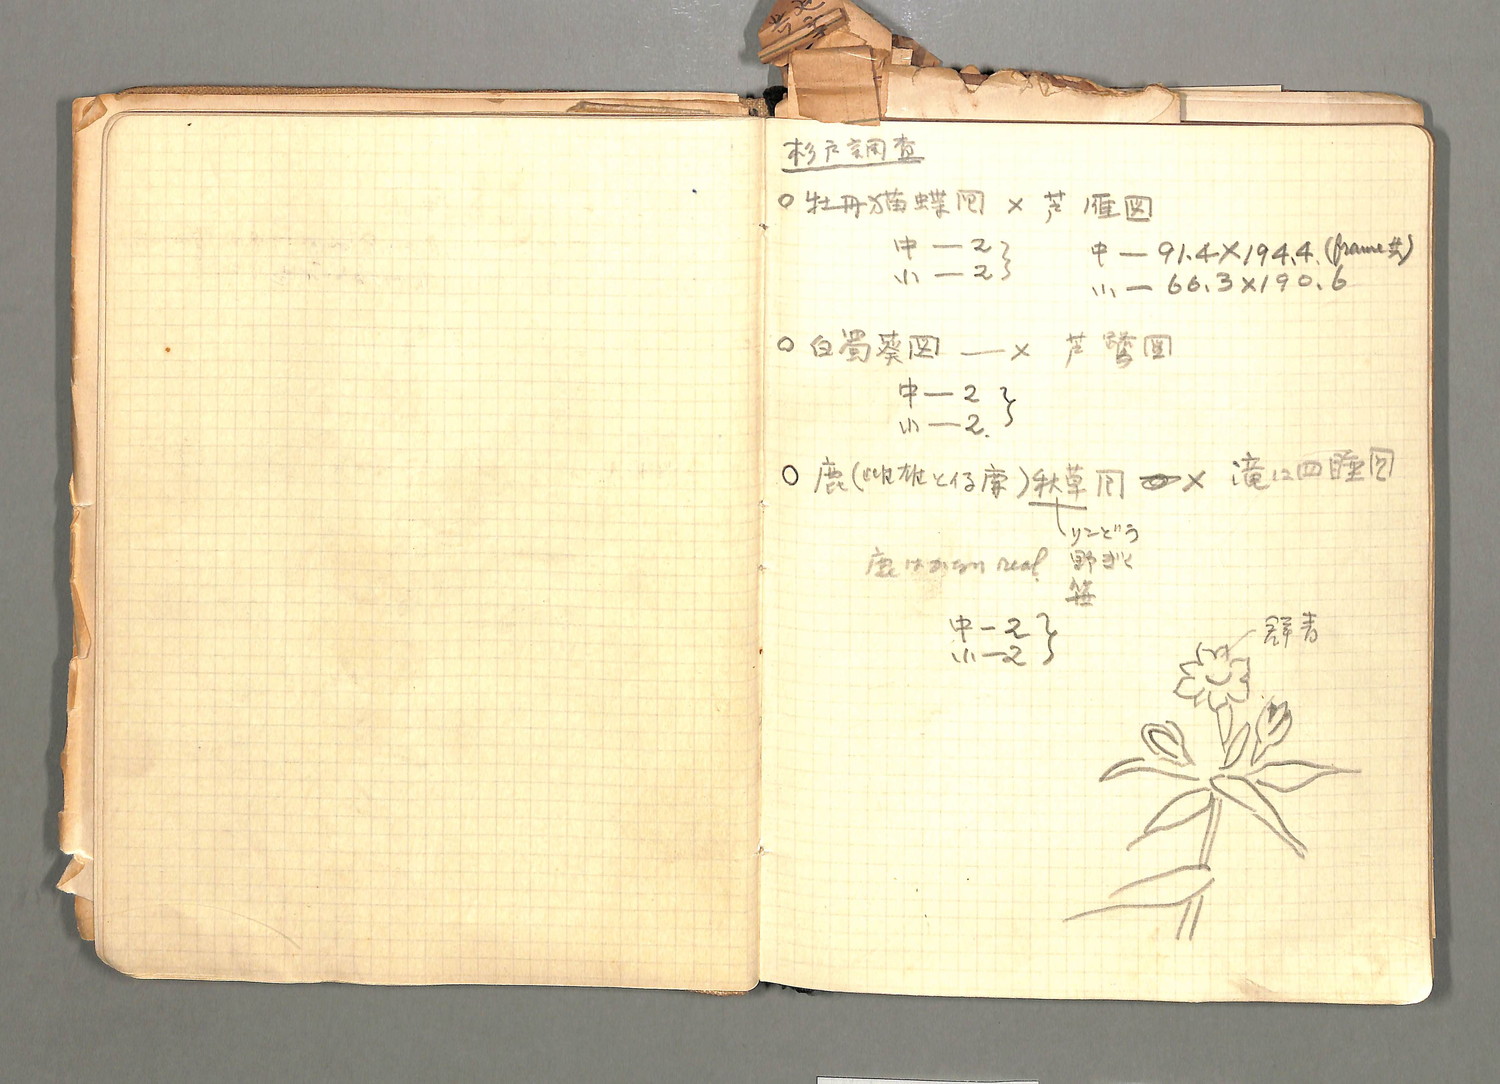 杉戸調査
○ 牡丹猫蝶図 × 芦雁図
中 — 2
小 — 2
中 — 91.4×194.4 (frame共)
小 — 66.3×190.6
○ 白蜀葵図 — × 芦鷺図
中 — 2
小 — 2.
○ 鹿(雌雄と仔鹿)秋草図 × 滝に四睡図
りんどう
野ぎく
笹
鹿はかなり real.
中 — 2
小 — 2
群青